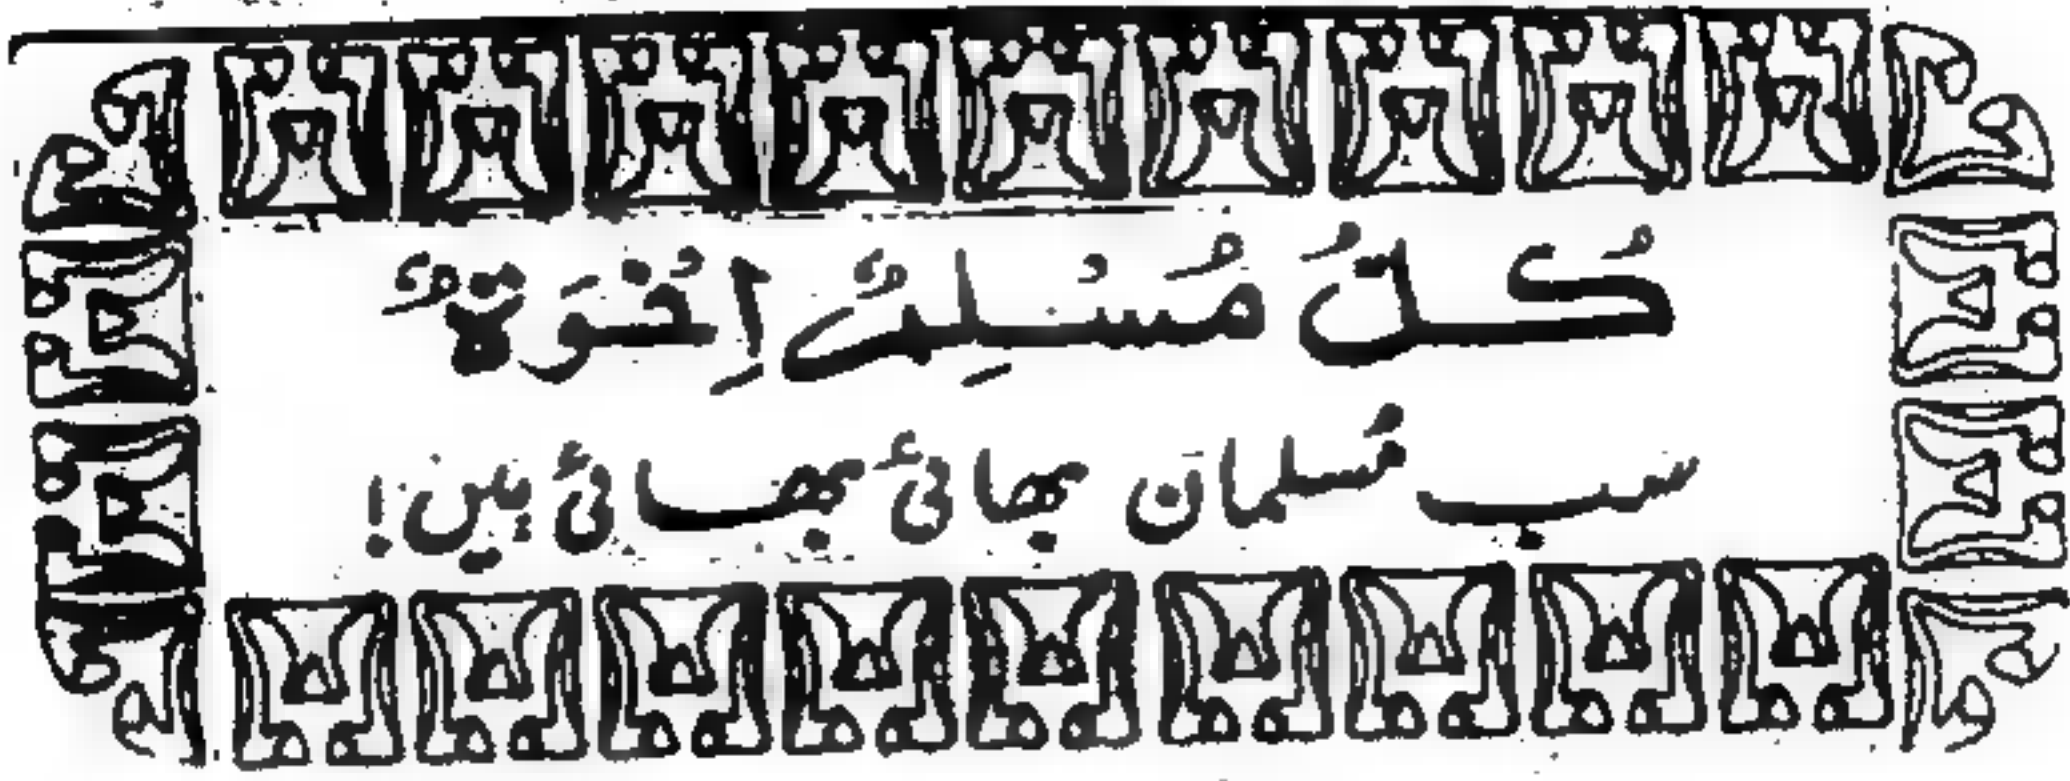 كُلُّ مُسْلِمٌ اِخُوَةٌ
سب مُسلمان بھائی بھائی ہیں!